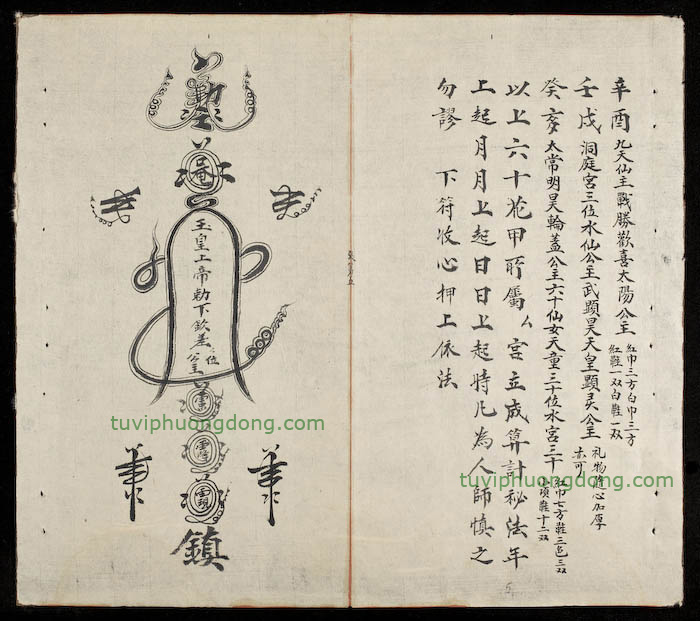 辛酉 九天仙主戰勝歡喜太陽公主 紅巾三方白巾三方
紅鞋一双白鞋一双
壬戌 洞庭宮三位水仙公主武顕昊天皇顕灵公主 礼物隨心加厚
亦可
癸亥 太常明昊輪蓋公主六十仙女天童三十位水宮三十 紅巾七方鞋三色三双
項鞋十二双
以上六十花甲所屬 宮立成算計秘法年
上起月月上起日日上起時凡為人師慎之
勿謬 下符收心押上依法
唵
玉皇上帝勅下欽差 位
公主
鎮
tuviphuongdong.com
tuviphuongdong.com